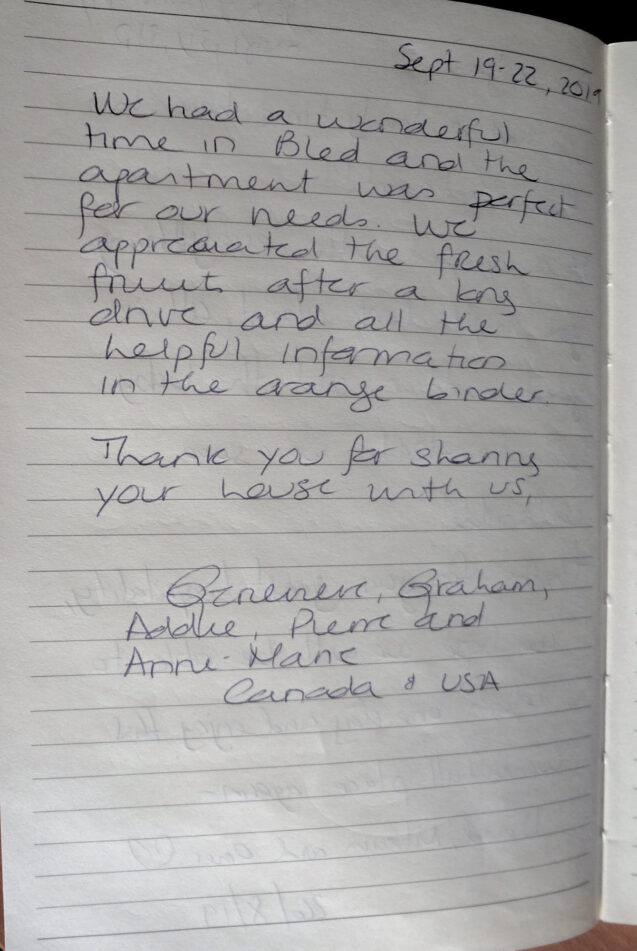 Sept 19-22, 2019
We had a wonderful
time in Bled and the
apartment was perfect
for our needs. We
appreciated the fresh
fruits after a long
drive and all the
helpful information
in the orange binder.
Thank you for sharing
your house with us,
Genevieve, Graham,
Addie, Pierre and
Anne-Marie
Canada & USA